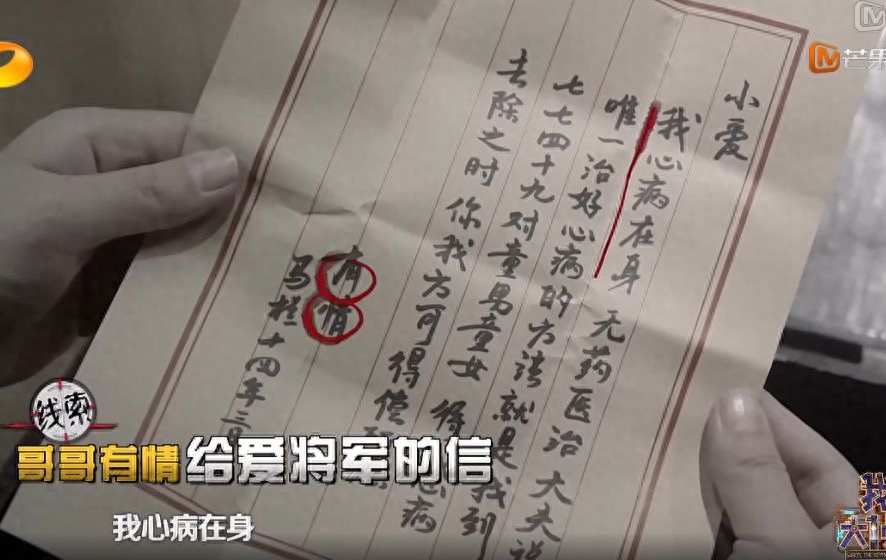 芒果
小爱
我心病在身 无药医治 大夫说
唯一治好心病的方法就是找到
七七四十九对童男童女 得 心病
去除之时 你我方可得偿
有情
十四年三
线索
哥哥有情给爱将军的信
我心病在身